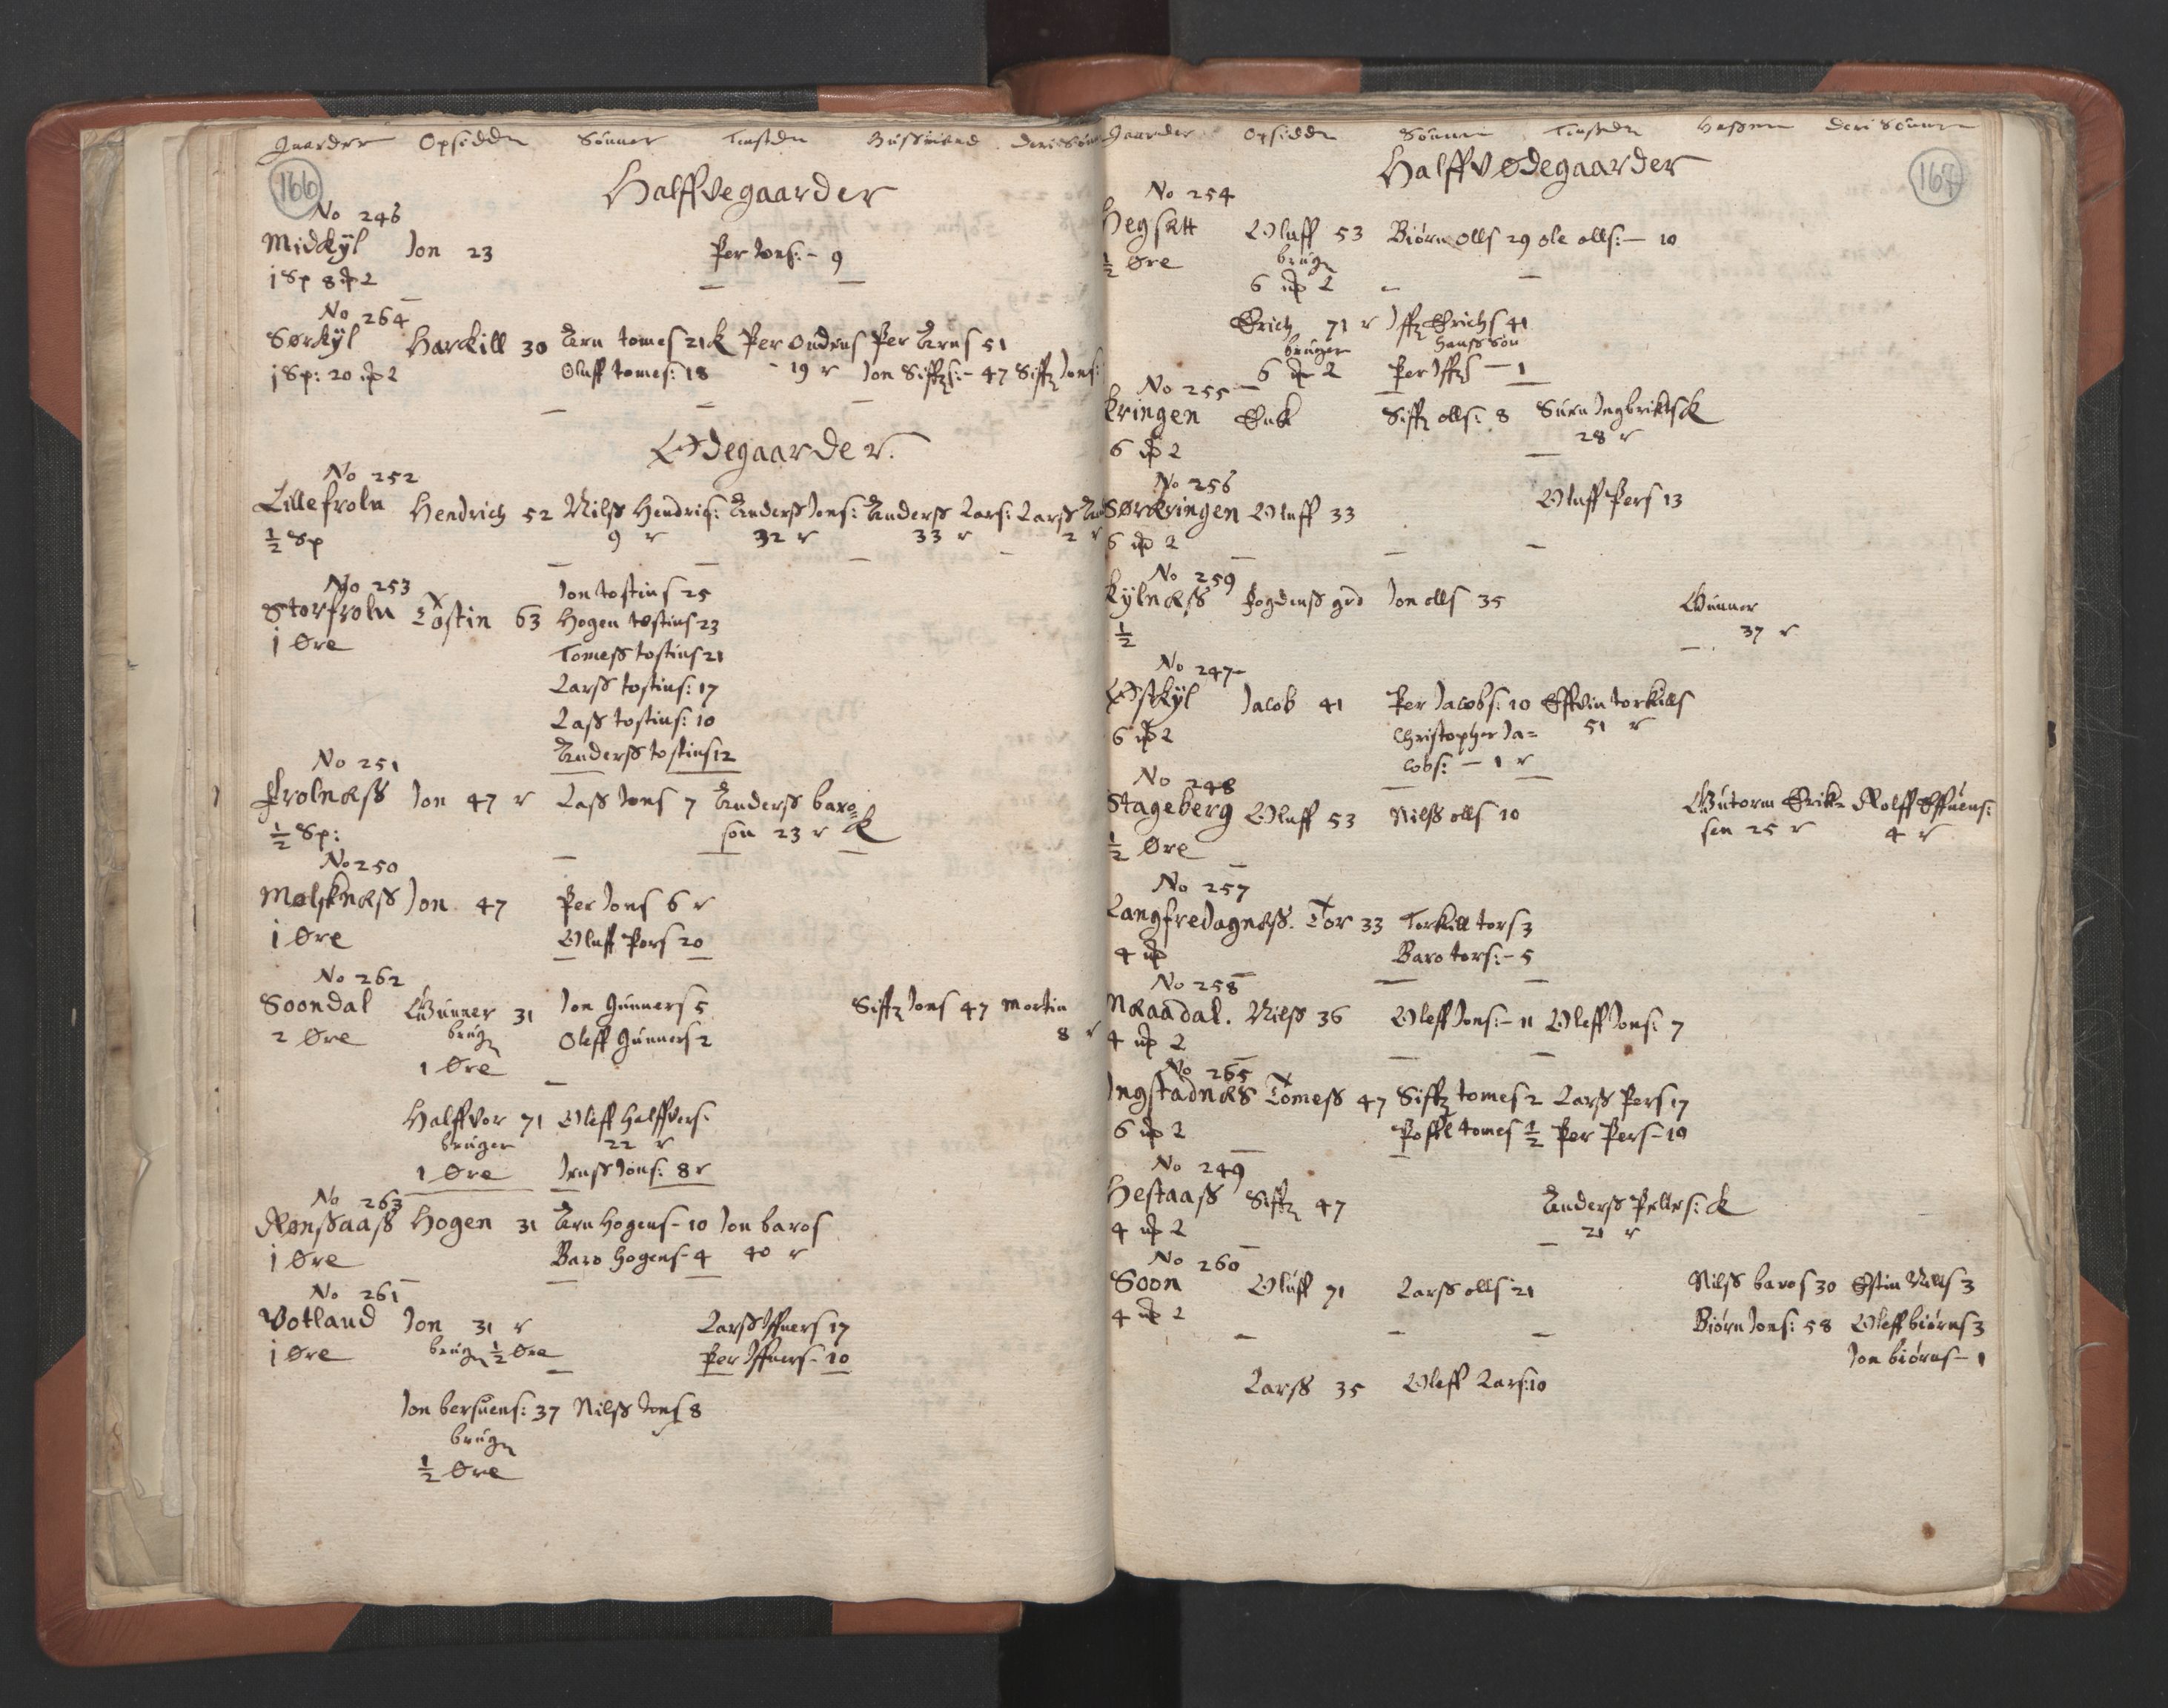 Gaarder Opsidder Sønner Tienstdr Hussmend deris Søn
166
Halffvegaarder
No 246
Midkÿl Jon 23 Per Jons: - 9
j Sp 8
No 264
Sørkÿl Harckill 30 Arn tomes 21 k Per Ondens Per Arns 51
j Sp: 20 Oluff tomes: 18 - 19 r Jon Siffs: - 47 Siffr Jons:
Ødegaarder.
No 252
Lillefroln Hendrich 52 Nilss Hendrics: Anderss Jons: Anderss Lars: Larss
½ Sp 9 r 32 r 33 r 2 r
No 253
Jon tostins 25
Storfroln Tostin 63 Hogen tostins 23
j Øre Tomess tostins 21
Larss tostins: 17
Lass tostins: 10
Anderss tostins 12
No 251
Frolnæss Jon 47 r Lass Jons 7 Anderss baro=
½ Sp: son 23 r k
No 250
Molsknæss Jon 47 Per Jons 6 r
j Øre Oluff Pers 20
No 262
Soondal Gunner 31 Jon Gunners 5 Siffr Jons 47 Mortin
2 Øre brug Oleff Gunners 2 8 r
1 Øre
Halffvor 71 Oleff Halffvers:
bruger 22 r
1 Øre Jenss Jons: 8 r
No 263
Rønssaass Hogen 31 Arn Hogens - 10 Jon baros
j Øre Baro Hogens - 4 40 r
No 261
Votland Jon 31 r Larss Iffuers 17
j Øre brug ½ Øre Per Iffuers - 10
Jon bersuens: 37 Nilss Jons 8
brug
½ Øre
Gaarder Opsidder Sønner Tienstdr Hussmen deris Sønner
167
Halffv Ødegaarder
No 254
Hegsætt Oluff 53 Biørn Olls 29 Ole olls: - 10
½ Øre brug
6
Erich 71 r Iffr Erichs 41
bruger Hanss Søn
6 Per Iffrs - 1
No 255
Kringen Enk Siffr olls: 8 Suen Ingbrikts k
6 28 r
No 256
Sørkringen Oluff 33 Oluff Pers 13
6
No 259
Kÿlnæss Fogdenss grd Jon olls 35 Gunner
½ 37 r
No 247
Østkÿl Jacob 41 Per Jacobs: 10 Effvin torkills
6 Christopher Ja= 51 r
cobs: - 1 r
No 248
Stageberg Oluff 53 Nilss olls 10 Gutorm Erik= Rolff Effuens:
½ Øre sen 25 r 4 r
No 257
Langfredagnæss. Tor 33 Torkill tors 3
4 Baro tors: - 5
No 258
Næaadal. Nilss 36 Oleff Jons: - 11 Oleff Jons: 7
4
No 265
Ingstadnæs Tomess 47 Siffr tomes 2 Larss Pers 17
6 Poffel tomes ½ Per Pers - 10
No 249
Hestaass Siffr 47 Anderss Pelles: k
4 21 r
No 260
Soon Oluff 71 Larss olls 21 Nilss baros 30 Estin Nills 3
4 Biørn Jons: 58 Oleff biørns 3
Jon biørns - 1
Larss 35 Oleff Lars: 10